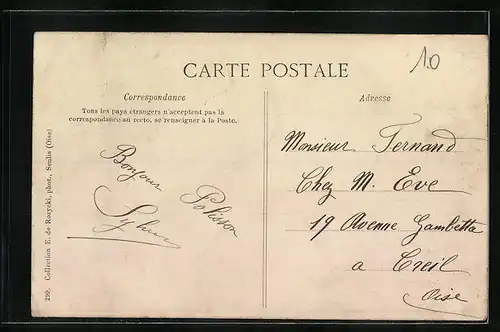 10
CARTE POSTALE
Correspondance
Tous les pays étrangers n'acceptent pas la
correspondance au recto, se renseigner à la Poste.
Bonjour
Adresse
Monsieur Fernand
Chez M. Eve
19 Avenue Gambetta
a Creil
Oise
292. Collection E. de Rozycki, phot., Senlis (Oise)